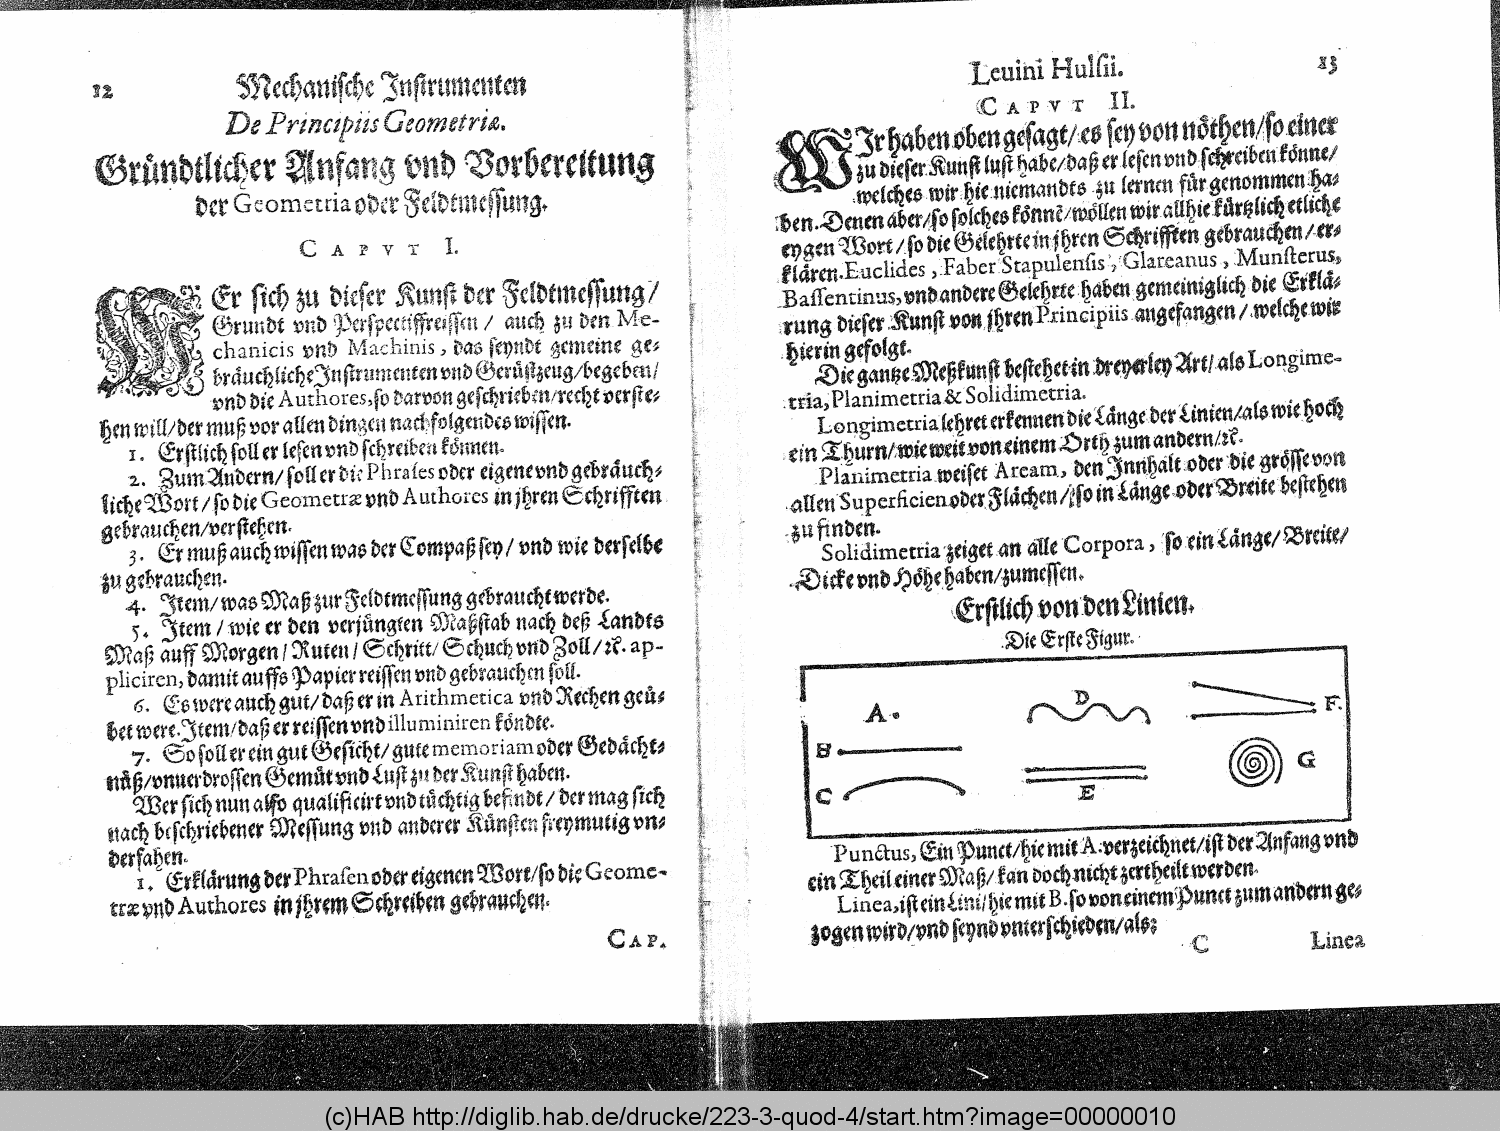 12
Mechanische Instrumenten
De Principiis Geometriæ.
Gründtlicher Anfang vnd Vorbereitung
der Geometria oder Feldtmessung.
CAPVT I.
WEr sich zu dieser Kunst der Feldtmessung/
Grundt vnd Perspectiffreissen / auch zu den Me-
chanicis vnd Machinis, das seyndt gemeine ge-
bräuchliche Instrumenten vnd Gerüstzeug/begeben/
vnd die Authores, so darvon geschrieben/recht verste-
hen will/der muß vor allen dingen nachfolgendes wissen.
1. Erstlich soll er lesen vnd schreiben können.
2. Zum Andern/ soll er die Phrases oder eigene vnd gebräuch-
liche Wort/ so die Geometræ vnd Authores in jhren Schrifften
gebrauchen/verstehen.
3. Er muß auch wissen was der Compaß sey/ vnd wie derselbe
zu gebrauchen.
4. Item/ was Maß zur Feldtmessung gebraucht werde.
5. Item / wie er den verjüngten Maßstab nach deß Landts
Maß auff Morgen/ Ruten/ Schritt/ Schuch vnd Zoll/ꝛc. ap-
pliciren, damit auffs Papier reissen vnd gebrauchen soll.
6. Es were auch gut/ daß er in Arithmetica vnd Rechen geü-
bet were. Item/daß er reissen vnd illuminiren köndte.
7. So soll er ein gut Gesicht/ gute memoriam oder Gedächt-
nüß/vnuerdrossen Gemüt vnd Lust zu der Kunst haben.
Wer sich nun also qualificirt vnd tüchtig befindt/ der mag sich
nach beschriebener Messung vnd anderer Künsten freymutig vn-
derfahen.
1. Erklärung der Phrasen oder eigenen Wort/so die Geome-
træ vnd Authores in jhrem Schreiben gebrauchen.
CAP.
Leuini Hulsii.
13
CAPVT II.
WIr haben oben gesagt/ es sey von nöthen/so einer
zu dieser Kunst lust habe/daß er lesen vnd schreiben könne/
welches wir hie niemandts zu lernen für genommen ha-
ben. Denen aber/so solches könnē/wöllen wir allhie kürtzlich etliche
eygen Wort/ so die Gelehrte in jhren Schrifften gebrauchen/ er-
klären. Euclides, Faber Stapulensis, Glareanus, Munsterus,
Bassentinus, vnd andere Gelehrte haben gemeiniglich die Erklä-
rung dieser Kunst von jhren Principiis angefangen/ welche wir
hierin gefolgt.
Die gantze Meßkunst bestehet in dreyerley Art/ als Longime-
tria, Planimetria & Solidimetria.
Longimetria lehret erkennen die Länge der Linien/als wie hoch
ein Thurn/wie weit von einem Orth zum andern/ꝛc.
Planimetria weiset Aream, den Innhalt oder die grösse von
allen Superficien oder Flächen/ so in Länge oder Breite bestehen
zu finden.
Solidimetria zeiget an alle Corpora, so ein Länge/ Breite/
Dicke vnd Höhe haben/zumessen.
Erstlich von den Linien.
Die Erste Figur.
A.
B
C
D
E
F.
G
Punctus, Ein Punct/hie mit A. verzeichnet/ist der Anfang vnd
ein Theil einer Maß/ kan doch nicht zertheilt werden.
Linea, ist ein Lini/hie mit B. so von einem Punct zum andern ge-
zogen wird/vnd seynd vnterschieden/als:
C
Linea
(c)HAB http://diglib.hab.de/drucke/223-3-quod-4/start.htm?image=00000010